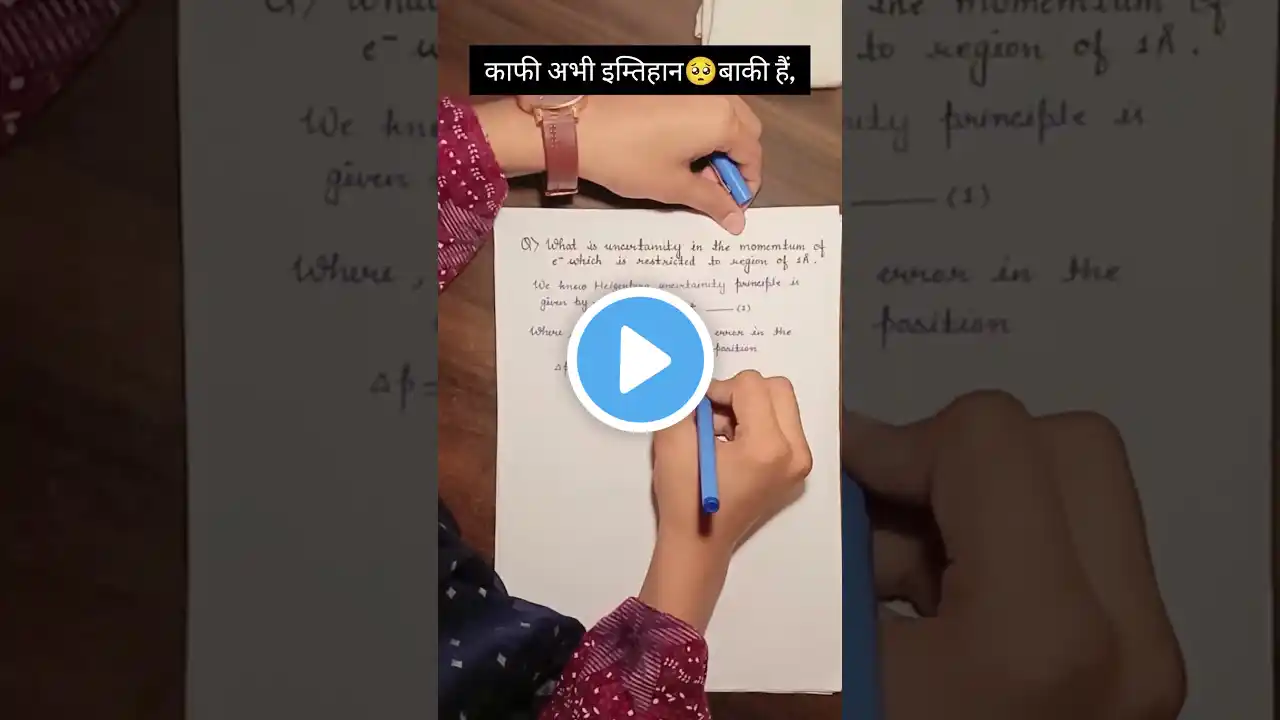 काफी अभी इम्तिहान🥺बाकी हैं,
Q> What is uncertainity in the momemtum of
e⁻ which is restricted to region of 1Å.
We know Heisenberg uncertainity principle is
given by ____ (1)
Where, error in the
position
Δp